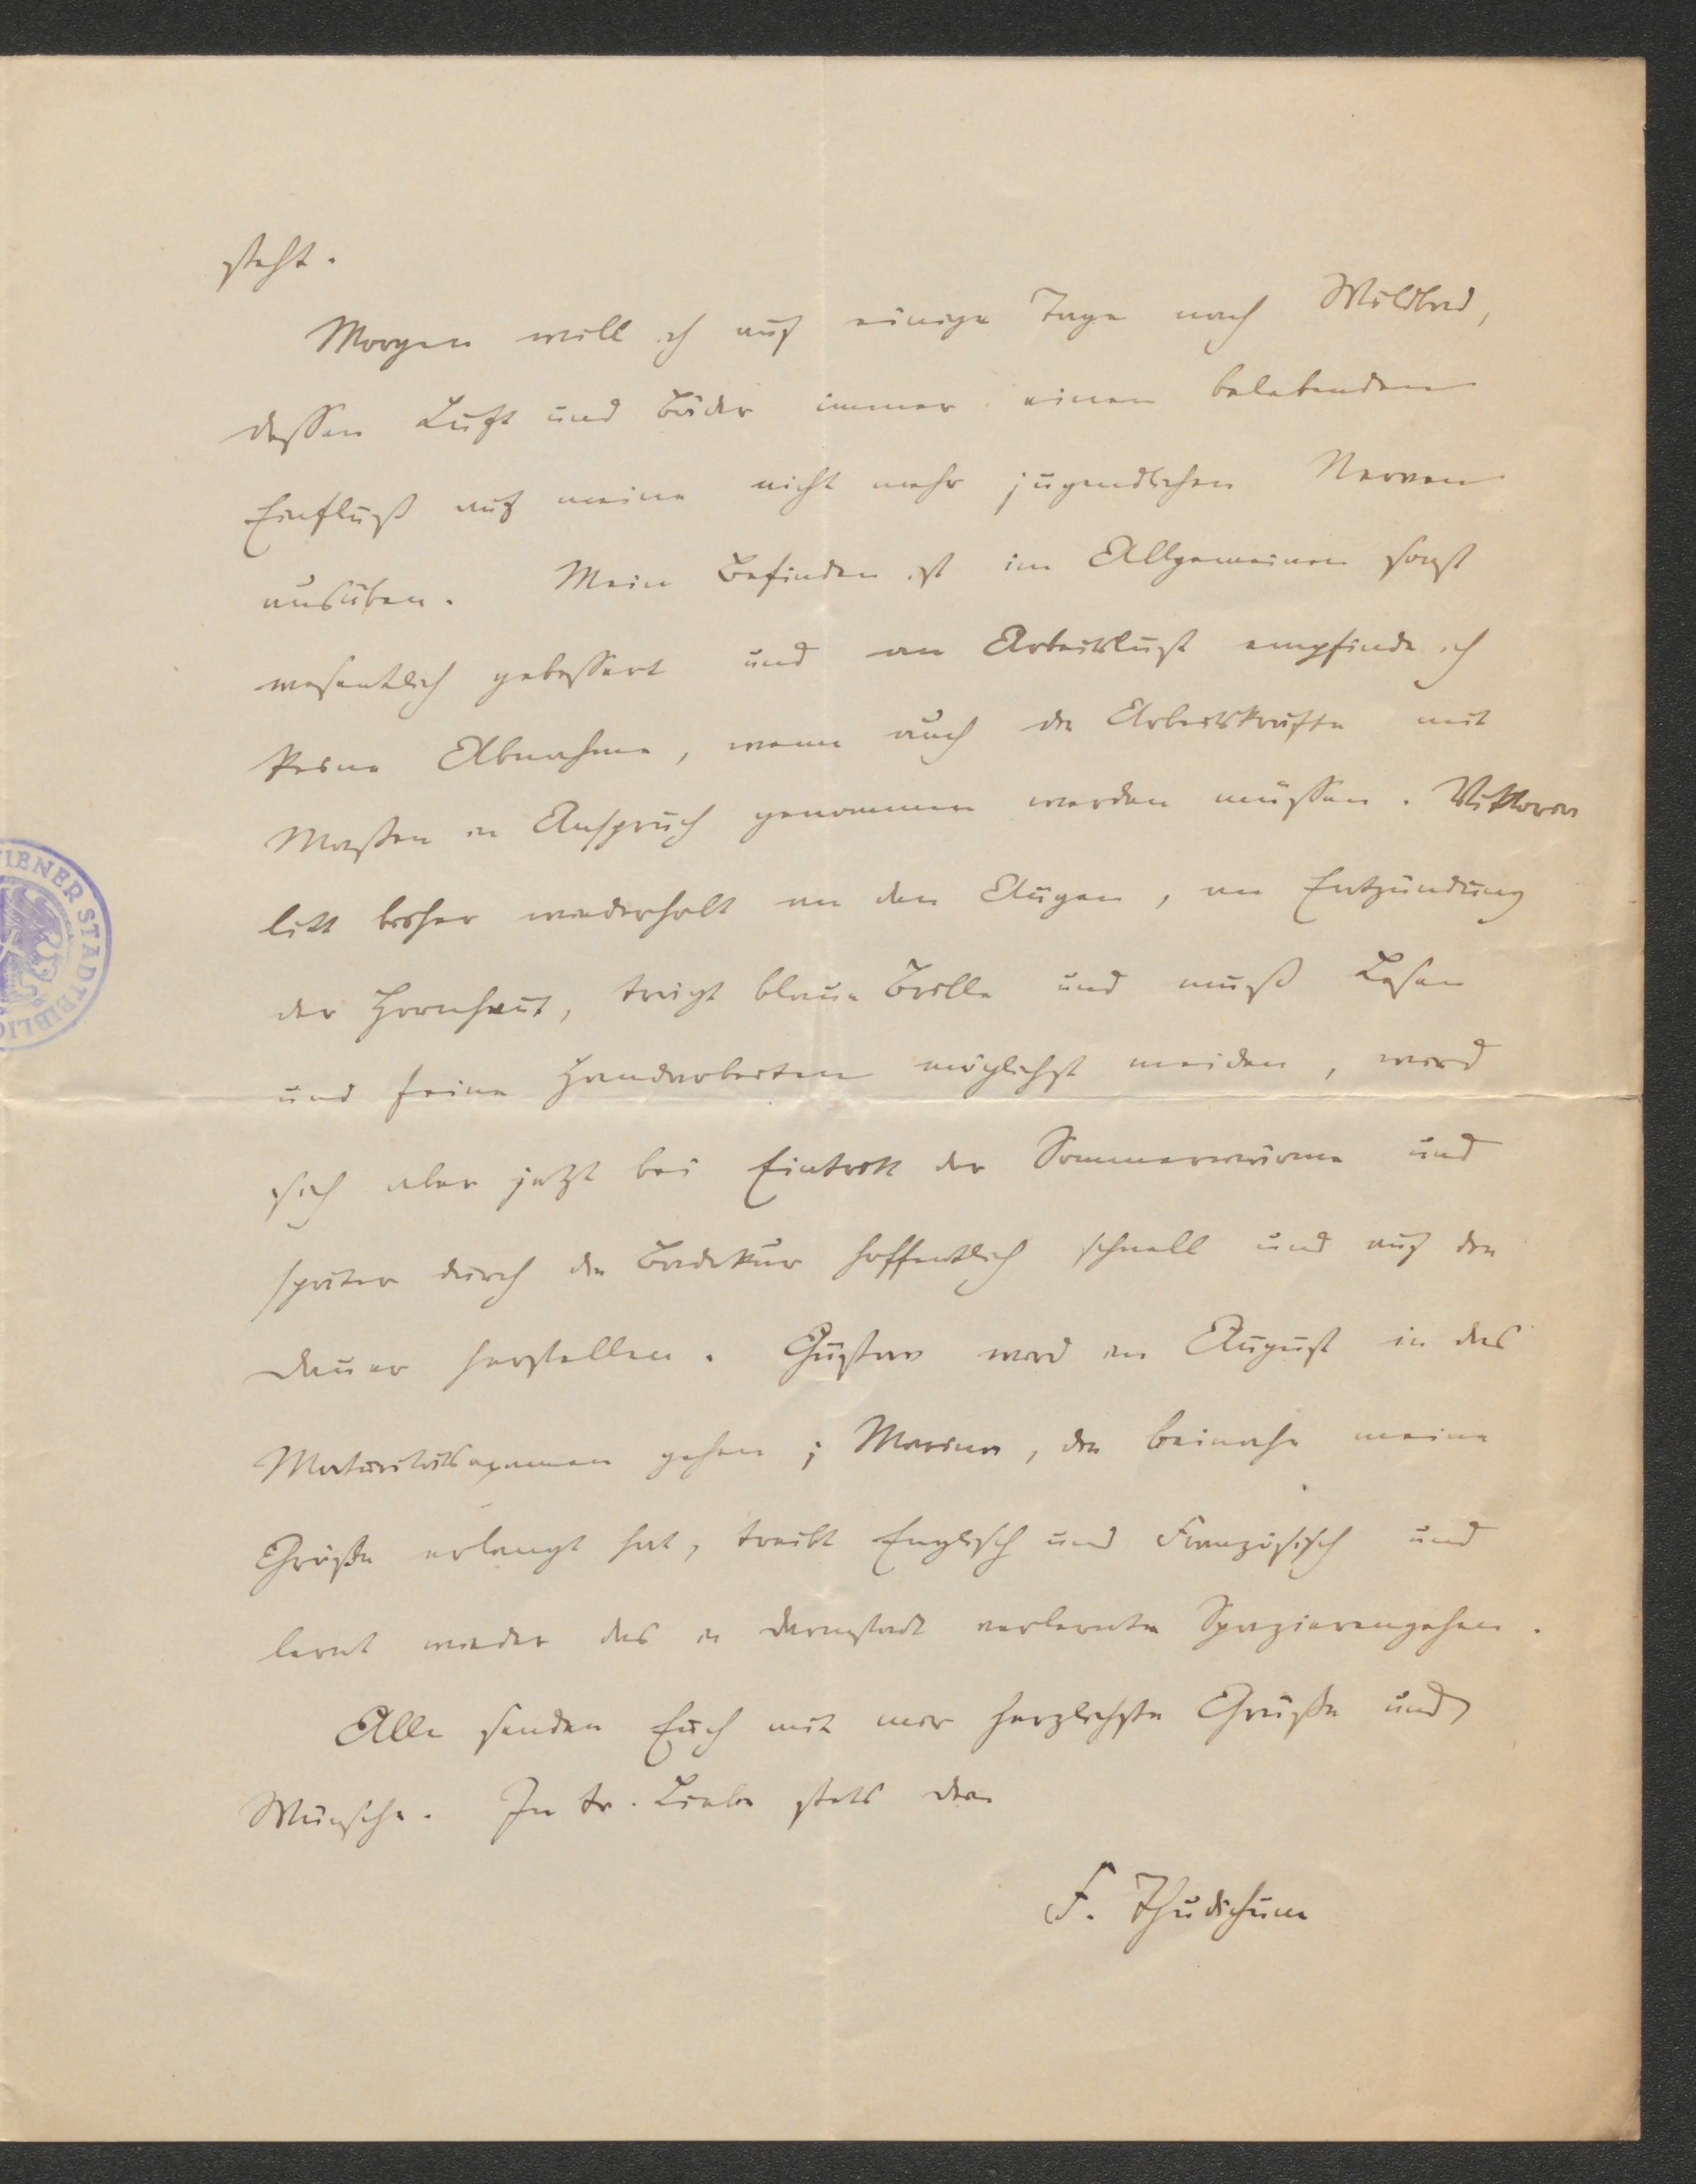 steht.
Morgen will ich auf einige Tage nach Wildbad,
dessen Luft und Bäder immer einen belebenden
Einfluß auf meine nicht mehr jugendlichen Nerven
ausüben. Mein Befinden ist im Allgemeinen sonst
wesentlich gebessert und an Arbeitslust empfinde ich
keine Abnahme, wenn auch die Arbeitskräfte mit
Maßen in Anspruch genommen werden müssen. Viktoria
litt bisher wiederholt an den Augen, an Entzündung
der Hornhaut, trägt blaue Brille und muß Lesen
und feine Handarbeiten möglichst meiden, wird
sich aber jetzt bei Eintritt der Sommerwärme und
später durch die Badekur hoffentlich schnell und auf die
Dauer herstellen. Gustav wird im August in das
Maturitätsexamen gehen; Marina, die beinahe meine
Größe erlangt hat, treibt Englisch und Französisch und
lernt wieder das in Darmstadt verlernte Spazierengehen.
Alle senden Euch mit mir herzlichste Grüße und
Wünsche. In tr. Liebe stets Dein
F. Thudichum
WIENER STADTBIBLIO